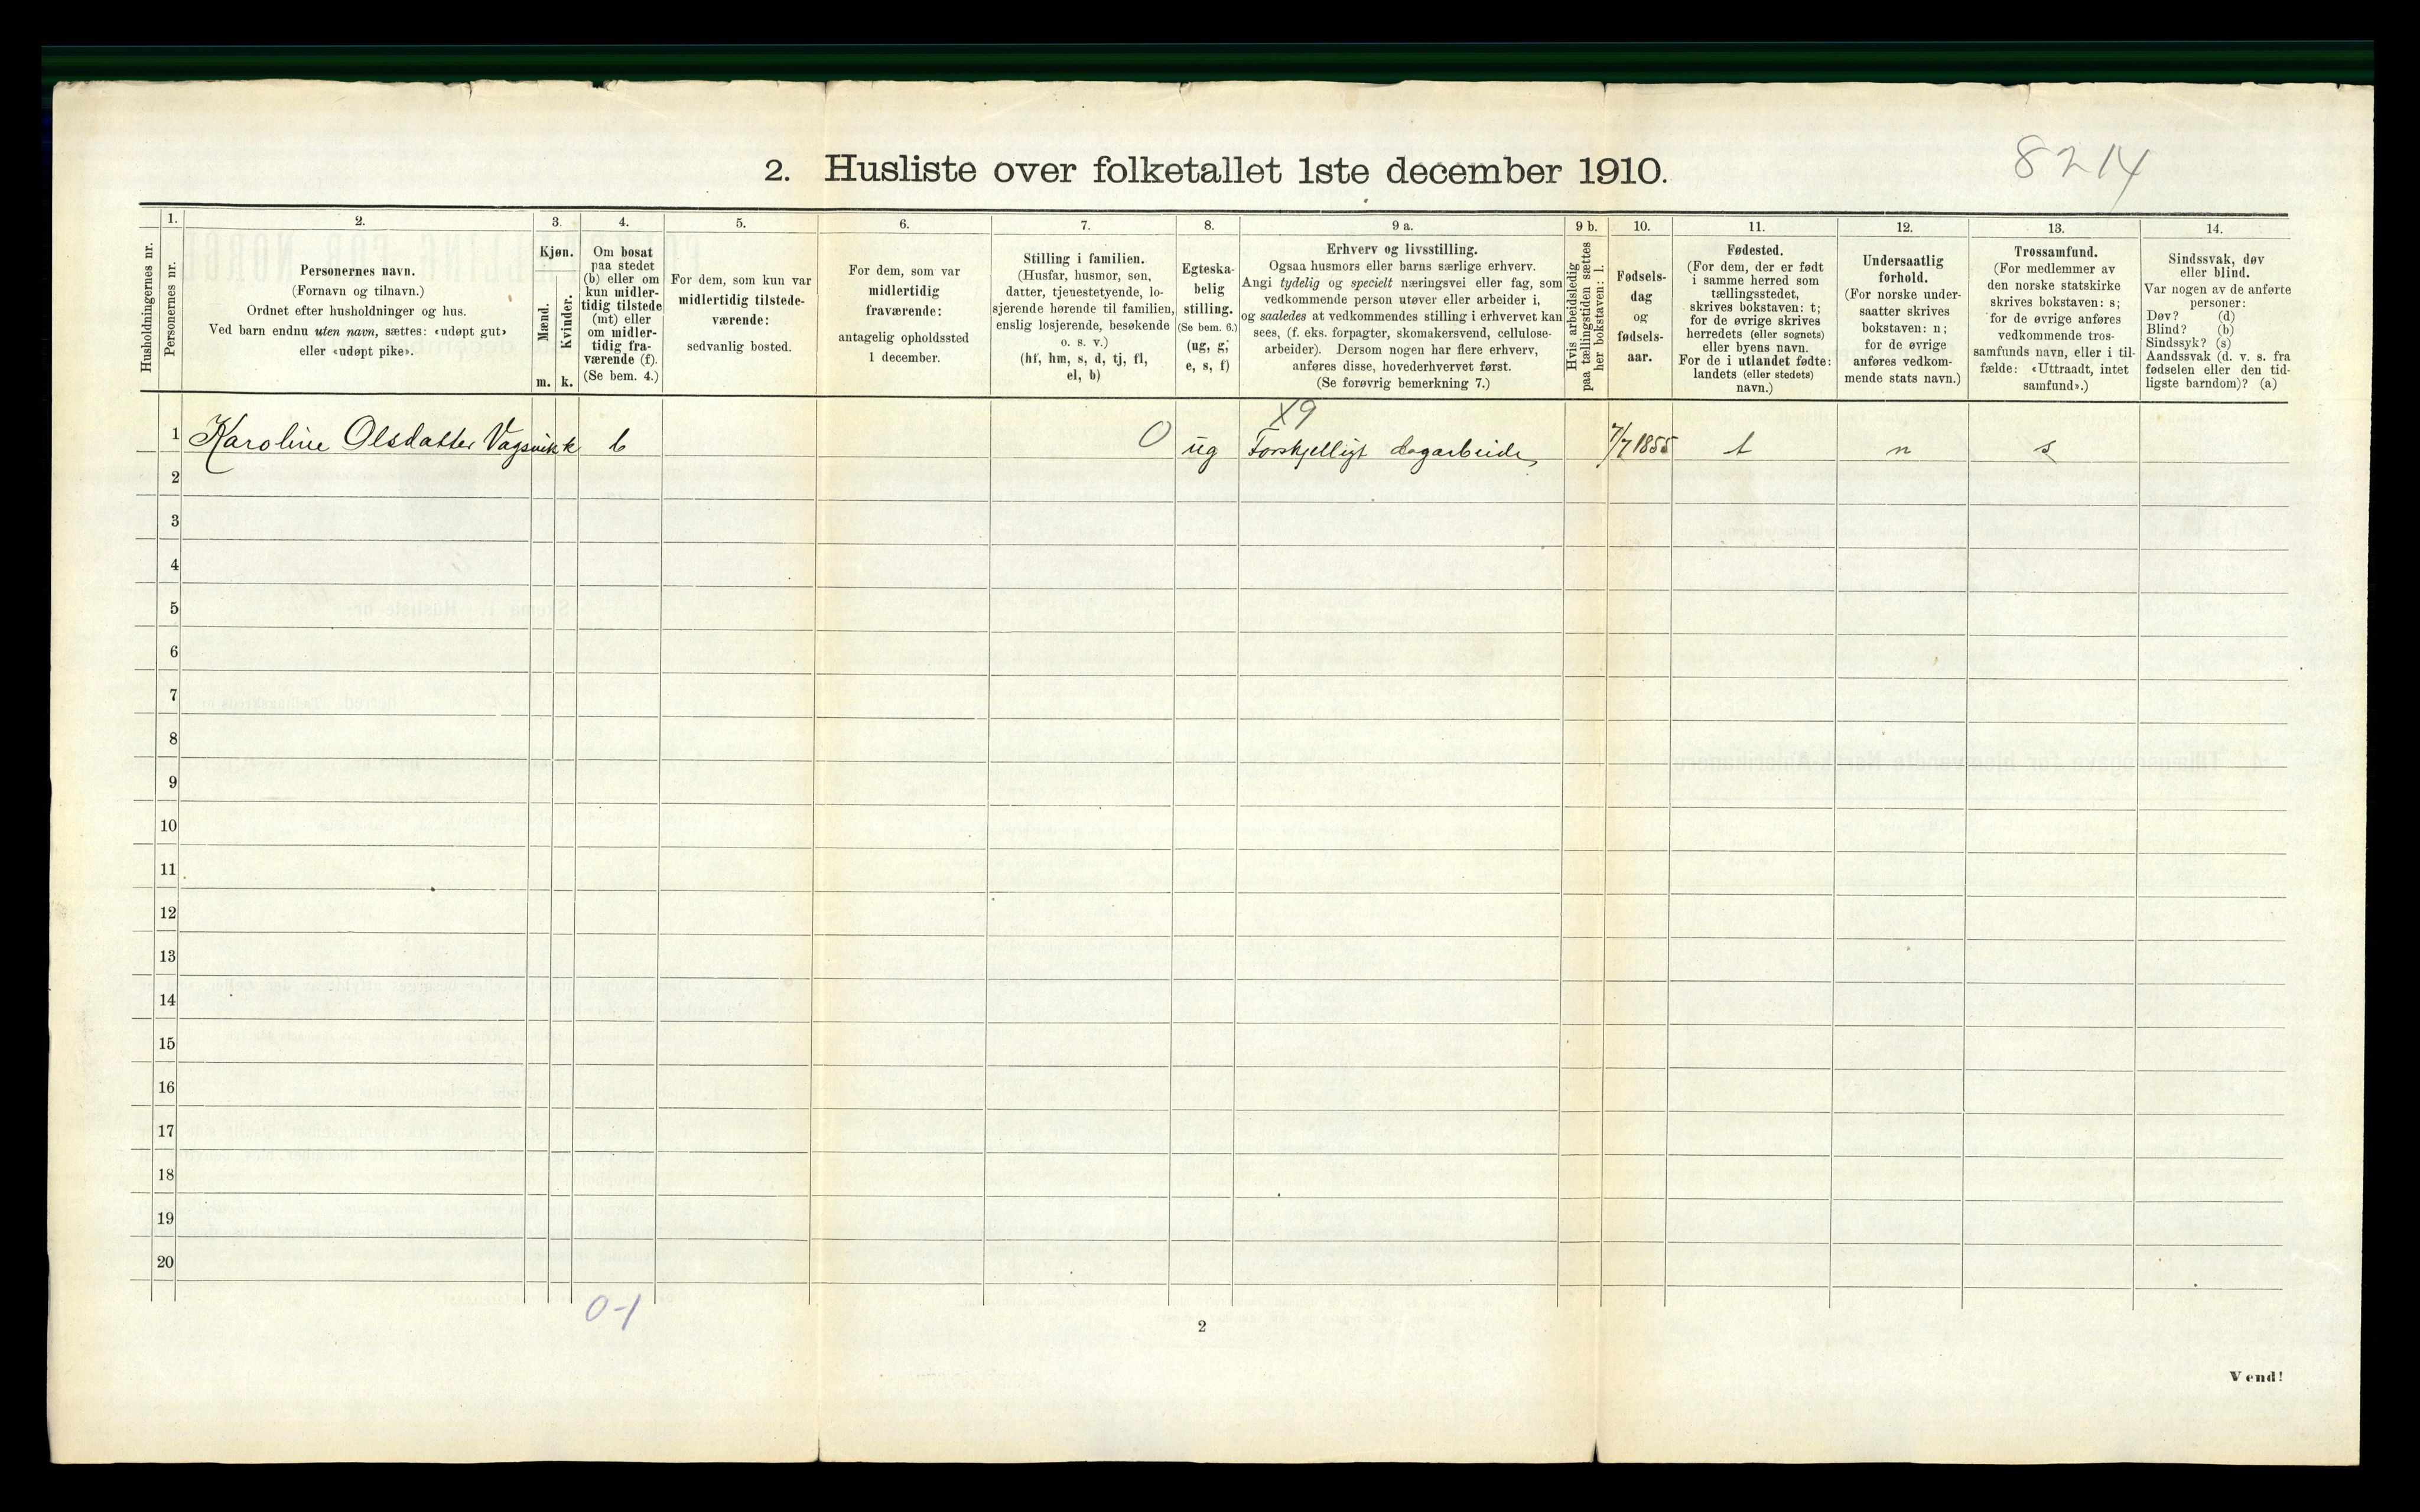 8214
2. Husliste over folketallet 1ste december 1910.
Husholdningernes nr.
1.
Personernes nr.
2.
Personernes navn.
(Fornavn og tilnavn.)
Ordnet efter husholdninger og hus.
Ved barn endnu uten navn, sættes: «udøpt gut»
eller «udøpt pike».
3.
Kjøn.
Mænd.
Kvinder.
m. k.
4.
Om bosat
paa stedet
(b) eller om
kun midler-
tidig tilstede
(mt) eller
om midler-
tidig fra-
værende (f).
(Se bem. 4.)
5.
For dem, som kun var
midlertidig tilstede-
værende:
sedvanlig bosted.
6.
For dem, som var
midlertidig
fraværende:
antagelig opholdssted
1 december.
7.
Stilling i familien.
(Husfar, husmor, søn,
datter, tjenestetyende, lo-
sjerende hørende til familien,
enslig losjerende, besøkende
o. s. v.)
(hf, hm, s, d, tj, fl,
el, b)
8.
Egteska-
belig
stilling.
(Se bem. 6.)
(ug, g,
e, s, f)
9 a.
Erhverv og livsstilling.
Ogsaa husmors eller barns særlige erhverv.
Angi tydelig og specielt næringsvei eller fag, som
vedkommende person utøver eller arbeider i,
og saaledes at vedkommendes stilling i erhvervet kan
sees, (f. eks. forpagter, skomakersvend, cellulose-
arbeider). Dersom nogen har flere erhverv,
anføres disse, hovederhvervet først.
(Se forøvrig bemerkning 7.)
9 b.
Hvis arbeidsledig
paa tællingstiden sættes
her bokstaven: l.
10.
Fødsels-
dag
og
fødsels-
aar.
11.
Fødested.
(For dem, der er født
i samme herred som
tællingsstedet,
skrives bokstaven: t;
for de øvrige skrives
herredets (eller sognets)
eller byens navn.
For de i utlandet fødte:
landets (eller stedets)
navn.)
12.
Undersaatlig
forhold.
(For norske under-
saatter skrives
bokstaven: n;
for de øvrige
anføres vedkom-
mende stats navn.)
13.
Trossamfund.
(For medlemmer av
den norske statskirke
skrives bokstaven: s;
for de øvrige anføres
vedkommende tros-
samfunds navn, eller i til-
fælde: «Uttraadt, intet
samfund».)
14.
Sindssvak, døv
eller blind.
Var nogen av de anførte
personer:
Døv? (d)
Blind? (b)
Sindssyk? (s)
Aandssvak (d. v. s. fra
fødselen eller den tid-
ligste barndom)? (a)
X9
1 Karoline Olsdatter Vagsvik k b 0 ug Forskjelligt dagarbeide 7/7 1855 t n s
2
3
4
5
6
7
8
9
10
11
12
13
14
15
16
17
18
19
20
0-1
2
Vend!